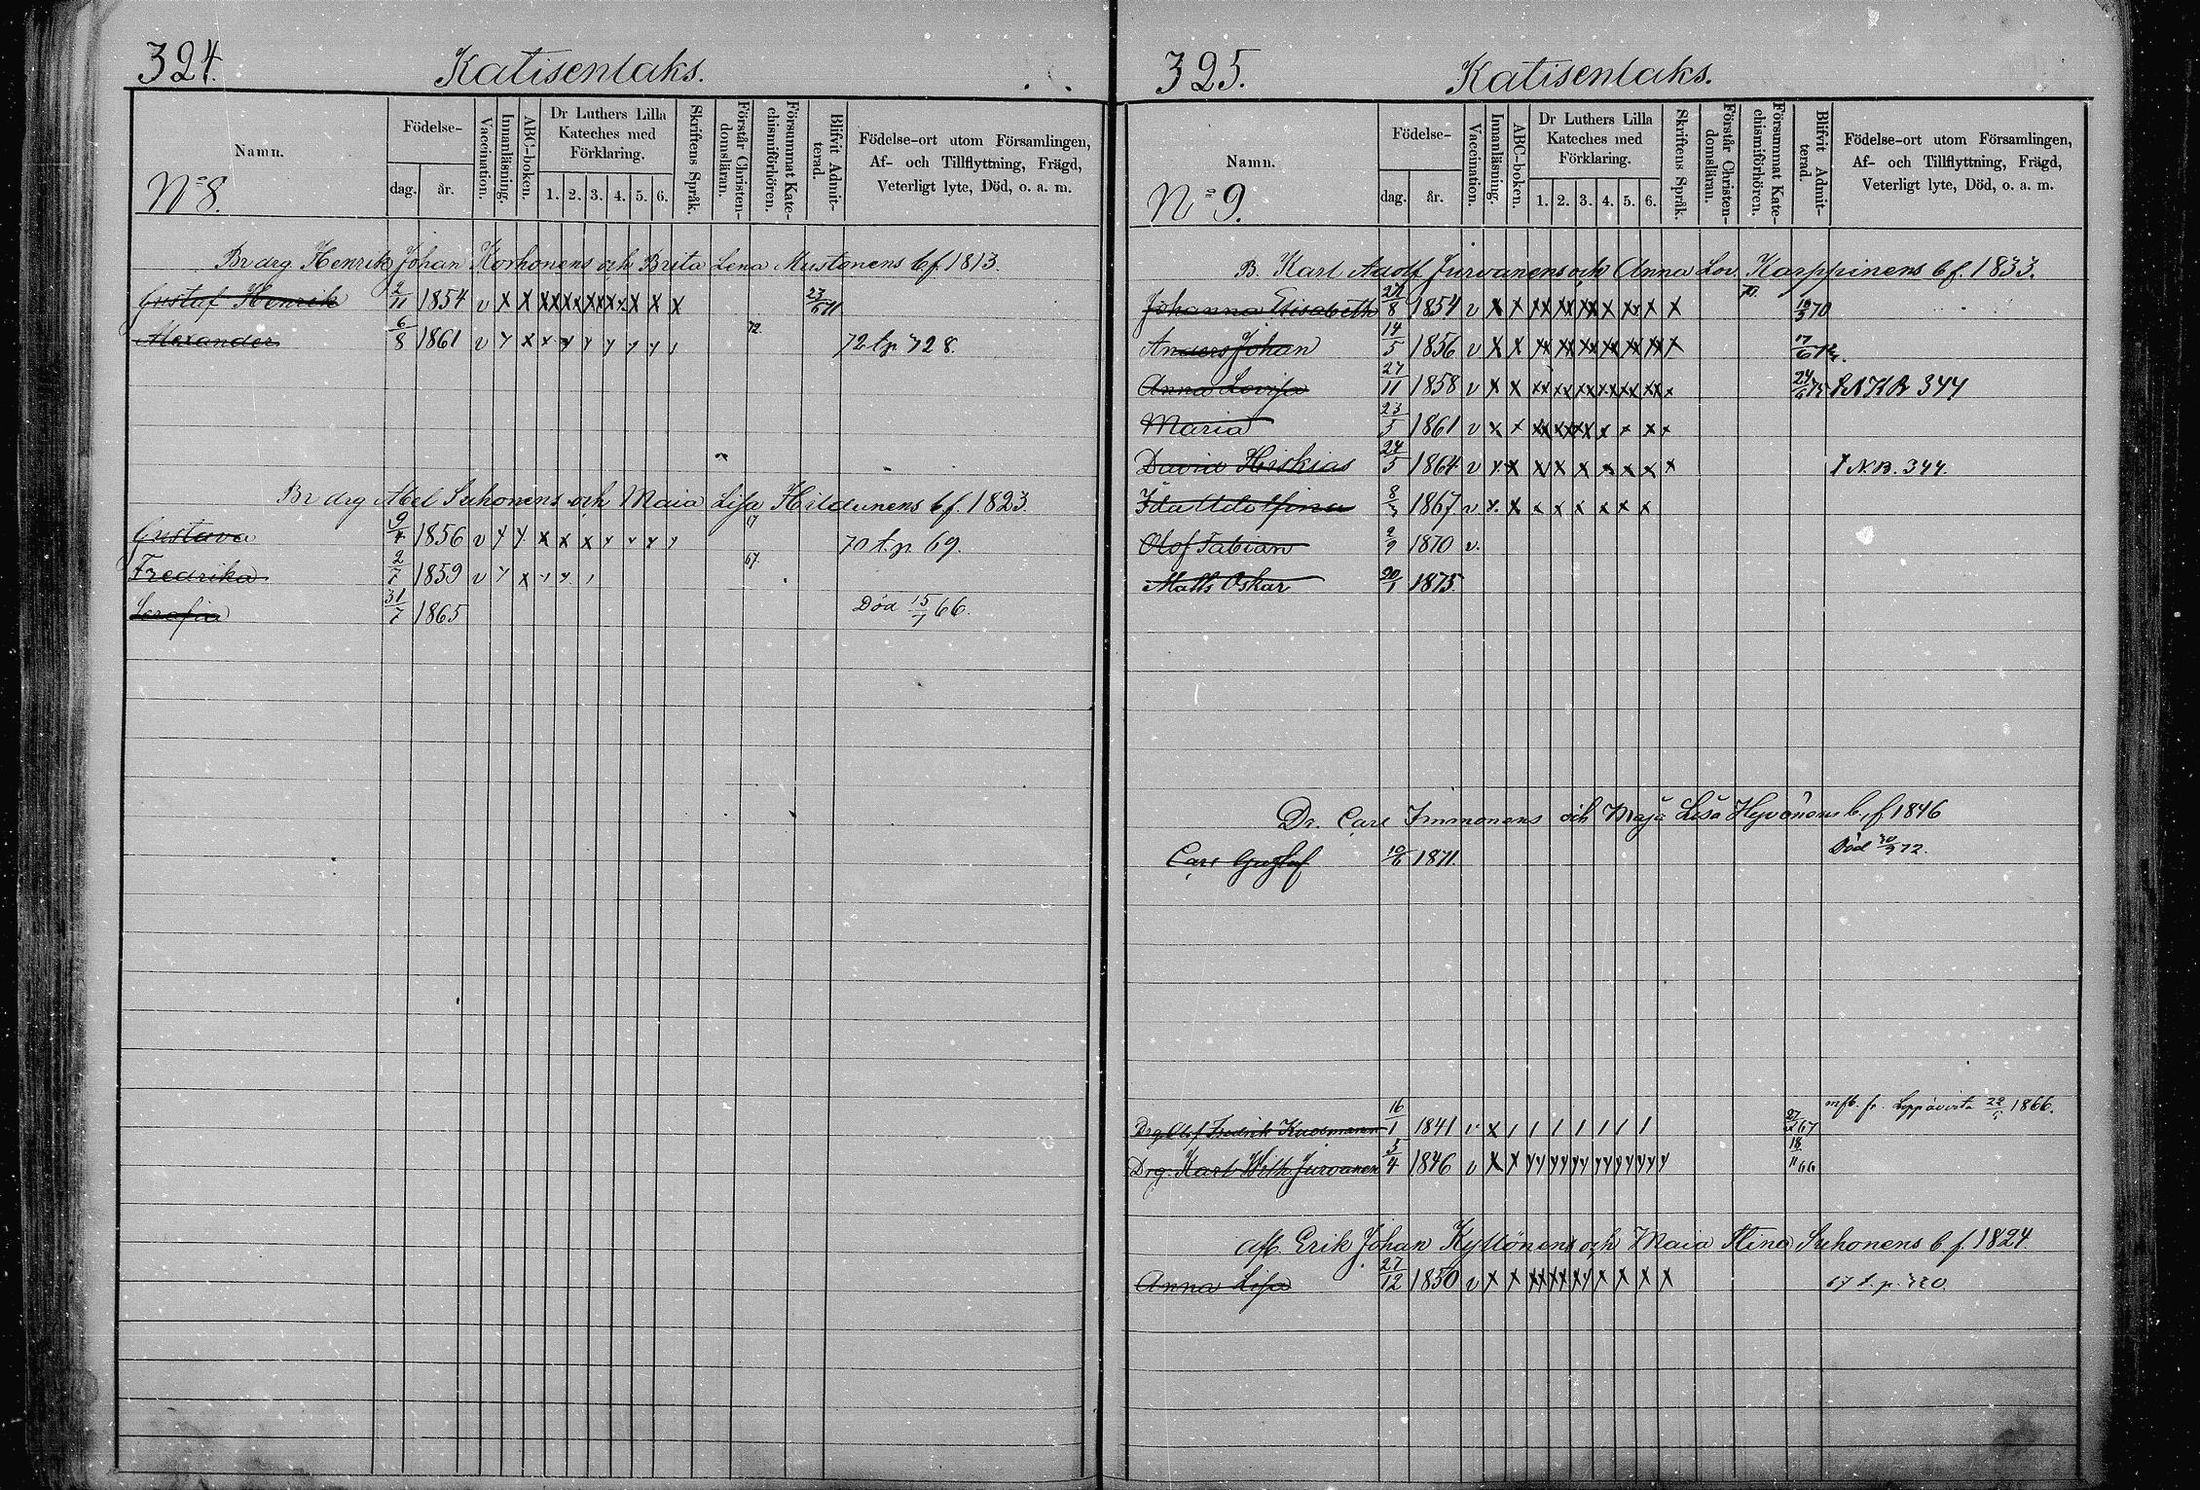 324.
Katisenlaks.
Namn.
Födelse-
dag.
år.
Vaccination.
Innanläsning.
ABC-boken.
Dr Luthers Lilla
Kateches med
Förklaring.
1. 2. 3. 4. 5. 6.
Skriftens Språk.
Förstår Christen-
domsläran.
Försummat Kate-
chismiförhören.
Blifvit Admit-
terad.
Födelse-ort utom Församlingen,
Af- och Tillflyttning, Frägd,
Veterligt lyte, Död, o. a. m.
No 8.
Br drg Henrik Johan Korhonens och Brita Lena Mustonens b f. 1813.
Gustaf Henrik 2/11 1854 v x x xx xx xx xx x x x 27/6 71
Alexander 6/8 1861 v y x x y y y y y 72 72 t.p. 728.
Br drg Abel Suhonens och Maia Lisa Hildunens b f. 1823.
Gustava 9/4 1856 v y y x x x y y x y 67 70 t.p. 69.
Fredrika 2/7 1859 v y x 67
Serafia 31/7 1865 Död 15/1 66.
325.
Katisenlaks.
Namn.
Födelse-
dag.
år.
Vaccination.
Innanläsning.
ABC-boken.
Dr Luthers Lilla
Kateches med
Förklaring.
1. 2. 3. 4. 5. 6.
Skriftens Språk.
Förstår Christen-
domsläran.
Försummat Kate-
chismiförhören.
Blifvit Admit-
terad.
Födelse-ort utom Församlingen,
Af- och Tillflyttning, Frägd,
Veterligt lyte, Död, o. a. m.
No 9.
B. Karl Adolf Jurvanens och Anna Lov. Karppinens b f. 1833.
Johanna Elisabeth 8 1854 v x x xx xx xx x xx x x 70
Anders Johan 14/5 1856 v x x xx xx xx xx xx xx x 17/6
Anna Lovisa 27/11 1858 v x x xx xx xx xx xx xx x 24/6 75 N K B 344
Maria 23/5 1861 v x x xx xx x x x x x
David Hiskias 24/5 1864 v x x x x x x x x x N. B. 344.
Ida Adolfina 8/3 1867 v x x x x x x x x
Olof Fabian 2/9 1870 v.
Matts Oskar 20/1 1875.
Dr. Carl Immonens och Maja Lisa Hyvönens b. f 1846
Carl Gustaf 10/6 1871. Död 72.
mfb. fr. Leppävirta 22 1866.
Drg Olof Fredrik Kuosmanen 16/1 1841 v x 1 1 1 1 1 1 1 67
Drg. Karl Wilh. Jurvanen 5/4 1846 v x x yy yy yy yy yy yy y 18/11 66
afl. Erik Johan Kyllönens och Maia Stina Suhonens b. f. 1824.
Anna Lisa 27/12 1850 v x x xx xx xy x x x x 67 t. p. 720.